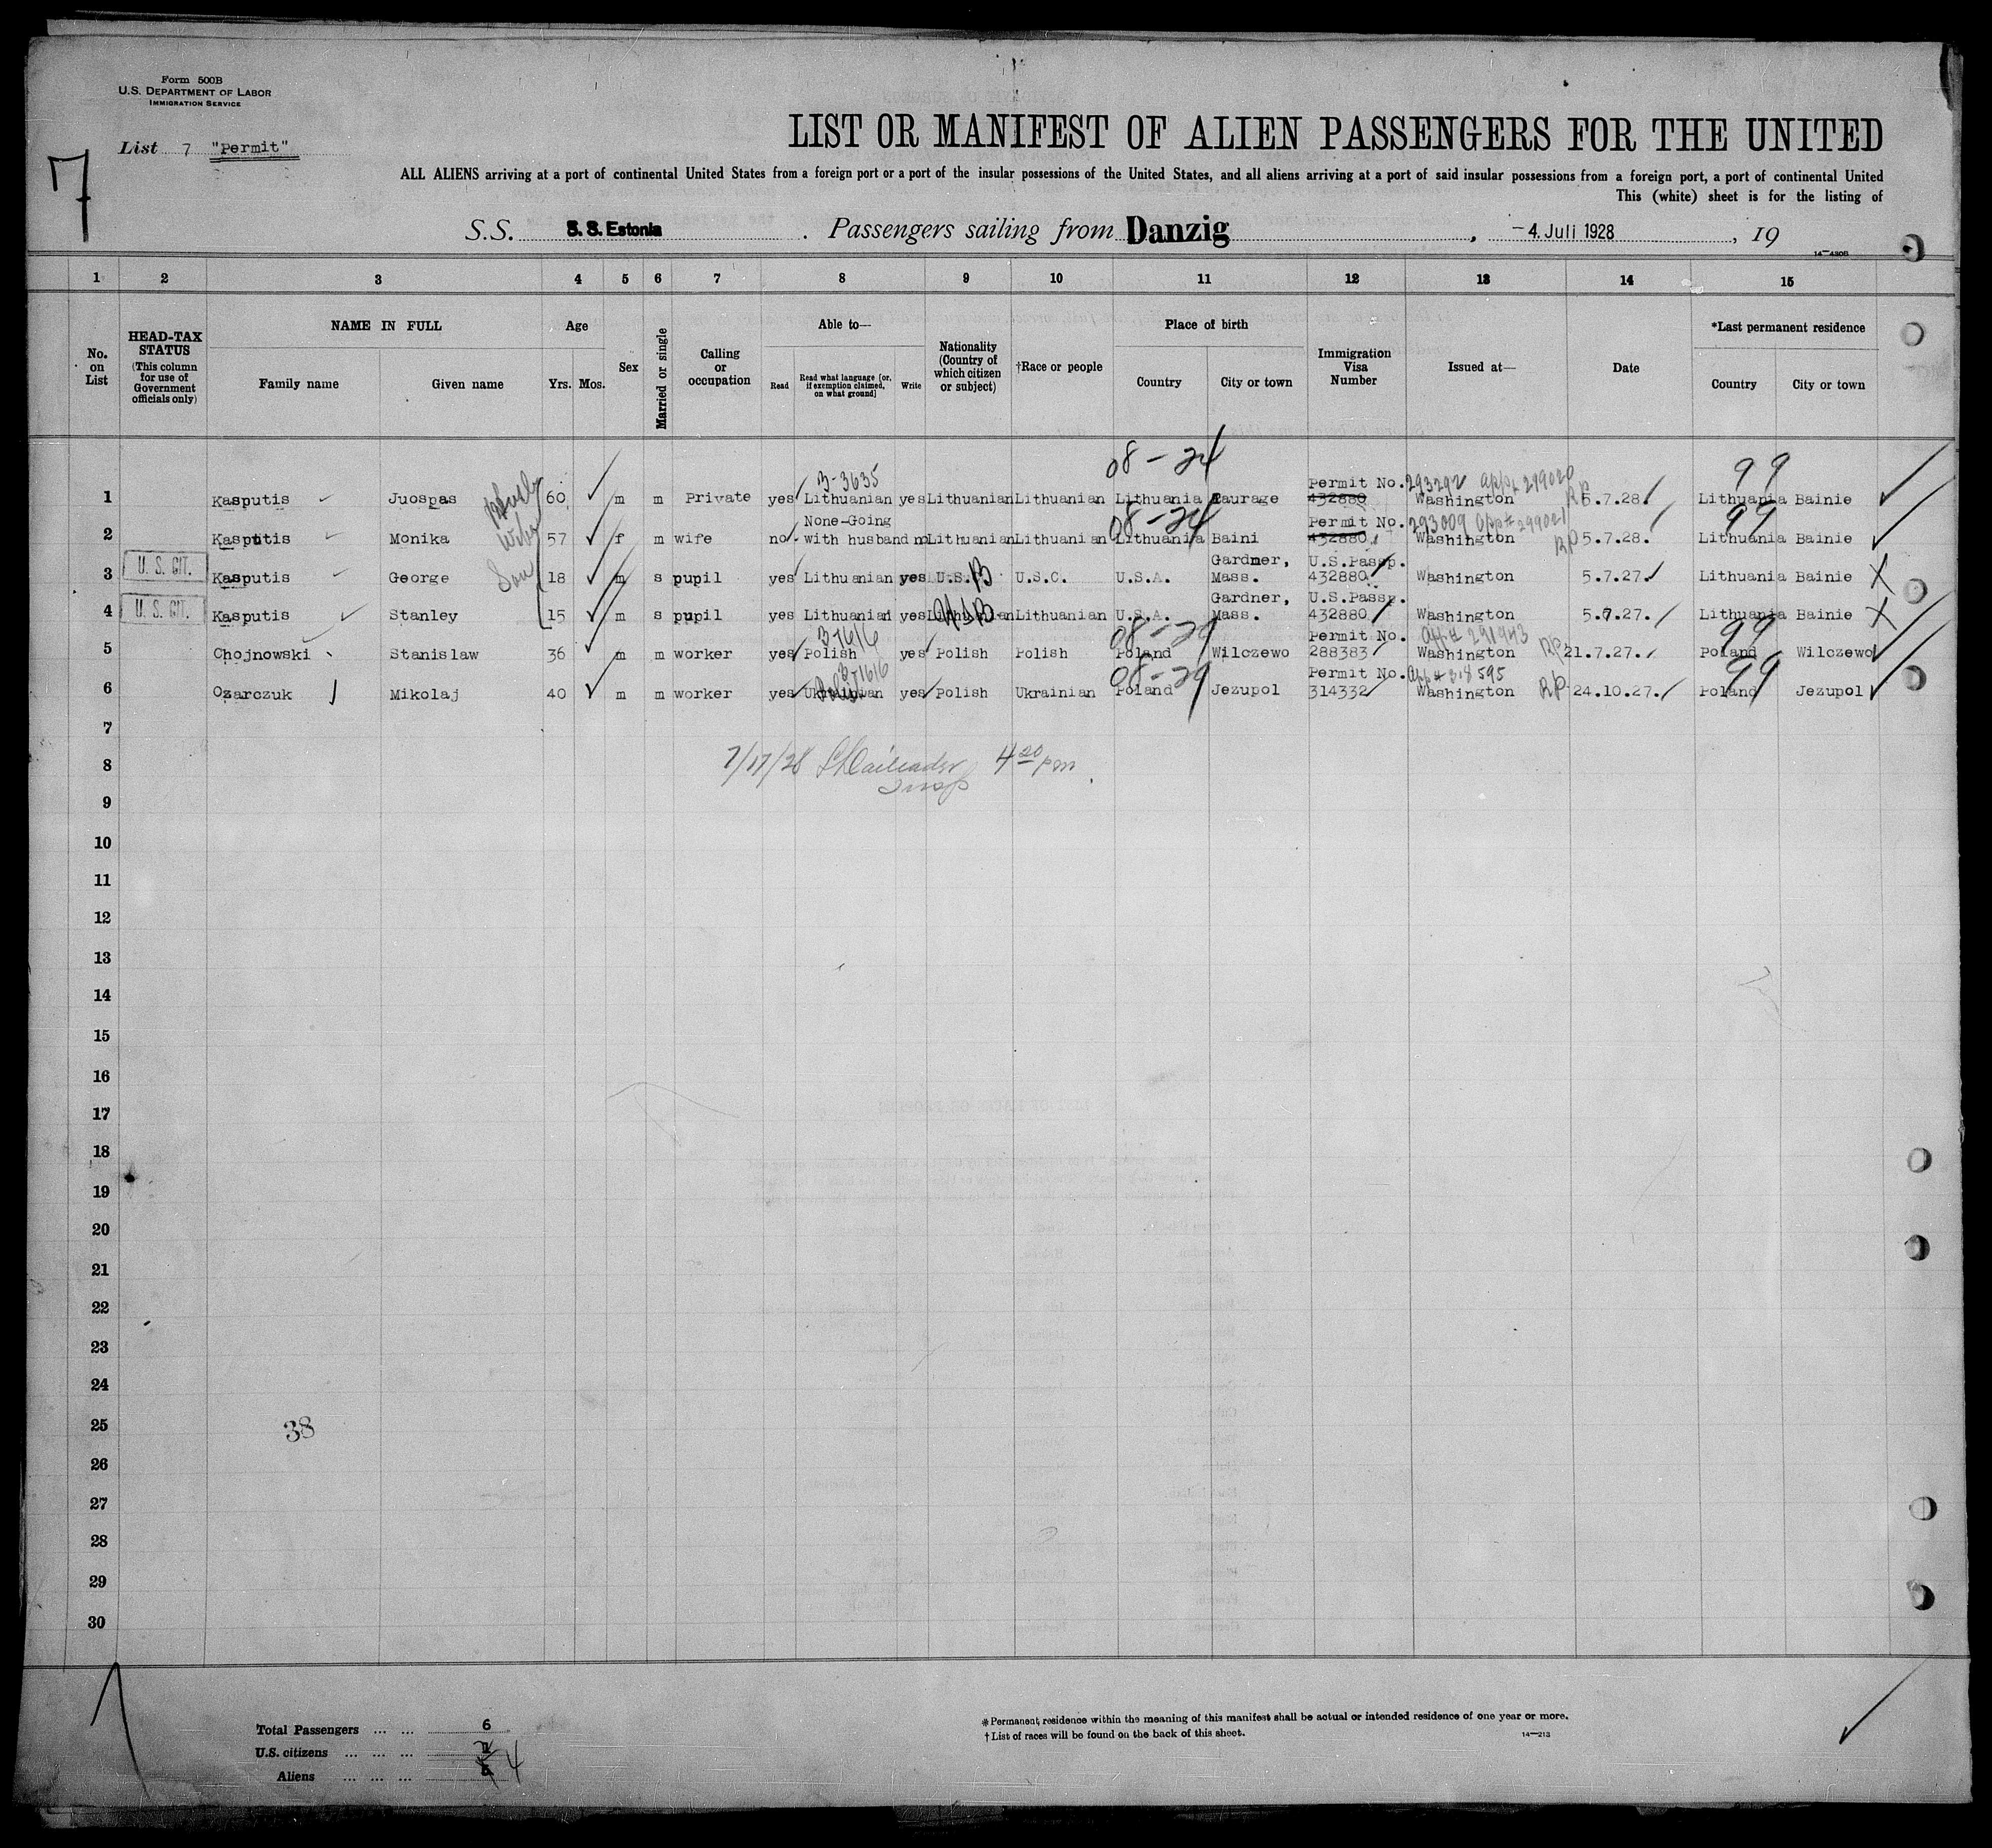 Form 500B
U.S. DEPARTMENT OF LABOR
IMMIGRATION SERVICE
List 7 "Permit"
7
LIST OR MANIFEST OF ALIEN PASSENGERS FOR THE UNITED
ALL ALIENS arriving at a port of continental United States from a foreign port or a port of the insular possessions of the United States, and all aliens arriving at a port of said insular possessions from a foreign port, a port of continental United
This (white) sheet is for the listing of
S.S. S. S. Estonia. Passengers sailing from Danzig, -4. Juli 1928, 19
1 2 3 4 5 6 7 8 9 10 11 12 13 14 15
No. on List
HEAD-TAX STATUS (This column for use of Government officials only)
NAME IN FULL Family name Given name
Age Yrs. Mos.
Sex
Married or single
Calling or occupation
Able to— Read Read what language [or, if exemption claimed, on what ground] Write
Nationality (Country of which citizen or subject)
†Race or people
Place of birth Country City or town
Immigration Visa Number
Issued at—
Date
*Last permanent residence Country City or town
08-24 99
3-3635 Permit No. 293292 app# 299020
1 Kasputis Juospas 60 m m Private yes Lithuanian yes Lithuanian Lithuanian Lithuania Taurage 432880 Washington RP 5.7.28. Lithuania Bainie
None-Going 08-24 Permit No. 293009 app# 299021 99
2 Kasputis Monika Wife 57 f m wife no with husband no Lithuanian Lithuanian Lithuania Baini 432880 Washington RP 5.7.28. Lithuania Bainie
Gardner, U.S.Passp.
3 U. S. CIT. Kasputis George Son 18 m s pupil yes Lithuanian yes U.S. U.S.C. U.S.A. Mass. 432880 Washington 5.7.27. Lithuania Bainie X
Gardner, U.S.Passp.
4 U. S. CIT. Kasputis Stanley 15 m s pupil yes Lithuanian yes Lithuanian Lithuanian U.S.A. Mass. 432880 Washington 5.7.27. Lithuania Bainie X
3-1616 08-29 Permit No. app# 291943 99
5 Chojnowski Stanislaw 36 m m worker yes Polish yes Polish Polish Poland Wilczewo 288383 Washington RP 21.7.27. Poland Wilczewo
3-1616 08-29 Permit No. app# 318595 99
6 Ozarczuk Mikolaj 40 m m worker yes Ukrainian yes Polish Ukrainian Poland Jezupol 314332 Washington RP 24.10.27. Poland Jezupol
7
8 7/17/28 Insp 4 20 pm
9
10
11
12
13
14
15
16
17
18
19
20
21
22
23
24
25 38
26
27
28
29
30
Total Passengers ... ... 6
U.S. citizens ... ... ... 2
Aliens ... ... ... 4
*Permanent residence within the meaning of this manifest shall be actual or intended residence of one year or more.
†List of races will be found on the back of this sheet.
14—213